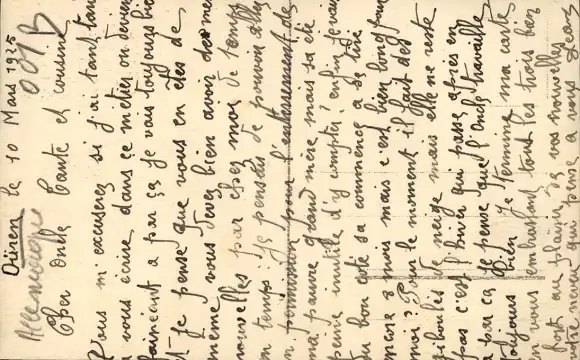 Düren le 10 Mars 1925
Allemagne
Cher Oncle Tante et cousine
Vous m'excuserez si j'ai tant tar
vous écrire dans ce métier on devien
fainéant a par ça je vais toujours bi
et je pense que vous en êtes de
même vous devez bien avoir de mes
nouvelles par chez moi de temps
en temps je pensais de pouvoir all
en permission pour l'enterrement de
ma pauvre grand mère mais sa été
peine inutile d'y compter enfin je va
du bon coté sa commence a se tire
encore 8 mois mais c'est bien long
moi? Pour le moment il fait des
giboulés de neige mais elle ne reste
pas c'est l'hiver qui passe après
par ça je pense que l'Oncle travaille
toujours bien Je termine ma carte
vous embrassant tout les trois bien
fort au plaisir de vos nouvelles
votre neveu qui pense a vous